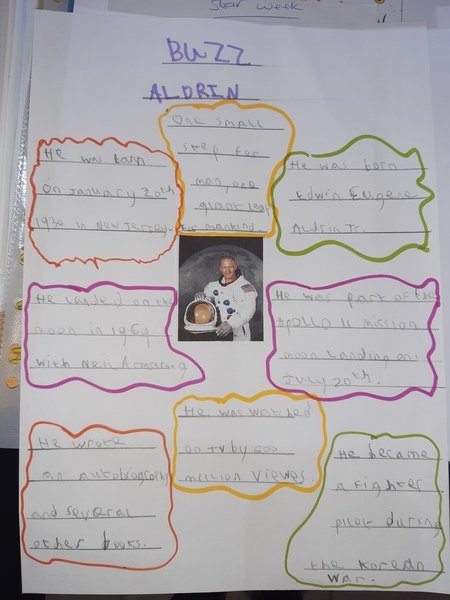 Star Week
BUZZ
ALDRIN
One small
step for
man, one
giant leap
for mankind.
He was born
on January 20th
1930 in New Jersey.
He was born
Edwin Eugene
Aldrin Jr.
He landed on the
moon in 1969
with Neil Armstrong
He was part of the
Apollo 11 mission
moon landing on
July 20th.
He wrote
an autobiography
and several
other books.
He was watched
on tv by 600
million viewes
He became
a fighter
pilot during
the Korean
war.